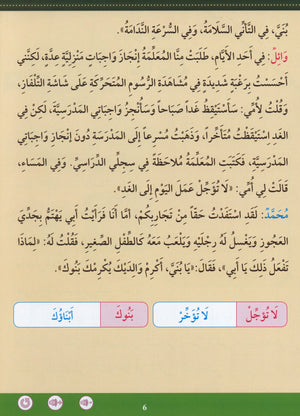 بُنَيَّ، فِي التَّأَنِّي السَّلَامَةُ، وَفِي السُّرْعَةِ النَّدَامَةُ».
وَائِلٌ: فِي أَحَدِ الْأَيَّامِ، طَلَبَتْ مِنَّا الْمُعَلِّمَةُ إِنْجَازَ وَاجِبَاتٍ مَنْزِلِيَّةٍ عِدَّةٍ، لَكِنَّنِي
أَحْسَسْتُ بِرَغْبَةٍ شَدِيدَةٍ فِي مُشَاهَدَةِ الرُّسُومِ الْمُتَحَرِّكَةِ عَلَى شَاشَةِ التِّلْفَازِ،
وَقُلْتُ لِأُمِّي: سَأَسْتَيْقِظُ غَدًا صَبَاحًا وَسَأُنْجِزُ وَاجِبَاتِي الْمَدْرَسِيَّةَ، لَكِنْ فِي
الْغَدِ اسْتَيْقَظْتُ مُتَأَخِّرًا، وَذَهَبْتُ مُسْرِعًا إِلَى الْمَدْرَسَةِ دُونَ إِنْجَازِ وَاجِبَاتِي
الْمَدْرَسِيَّةِ، فَكَتَبَتِ الْمُعَلِّمَةُ مُلَاحَظَةً فِي سِجِلِّي الدِّرَاسِيِّ. وَفِي الْمَسَاءِ،
قَالَتْ لِي أُمِّي: «لَا تُؤَجِّلْ عَمَلَ الْيَوْمِ إِلَى الْغَدِ».
مُحَمَّدٌ: لَقَدِ اسْتَفَدْتُ حَقًّا مِنْ تَجَارِبِكُمْ، أَمَّا أَنَا فَرَأَيْتُ أَبِي يَهْتَمُّ بِجَدِّيَ
الْعَجُوزِ وَيَغْسِلُ لَهُ رِجْلَيْهِ وَيَلْعَبُ مَعَهُ كَالطِّفْلِ الصَّغِيرِ، فَقُلْتُ لَهُ: «لِمَاذَا
تَفْعَلُ ذَلِكَ يَا أَبِي»، فَقَالَ: «يَا بُنَيَّ، أَكْرِمْ وَالِدَيْكَ يُكْرِمْكَ بَنُوكَ».
لَا تُؤَجِّلْ لَا تُؤَخِّرْ بَنُوكَ أَبْنَاؤُكَ
6